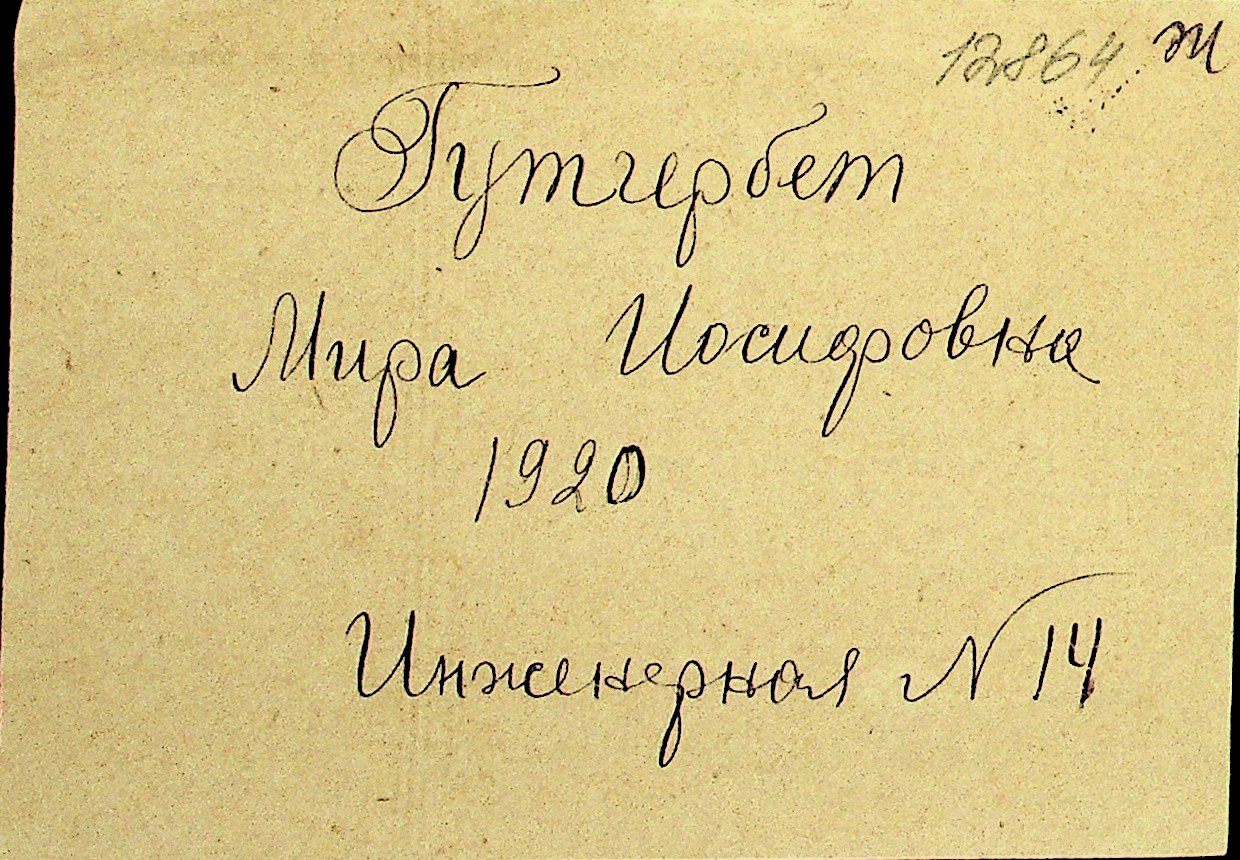 12864 т
Гутгербет
Мира Иосифовна
1920
Инженерная N 14